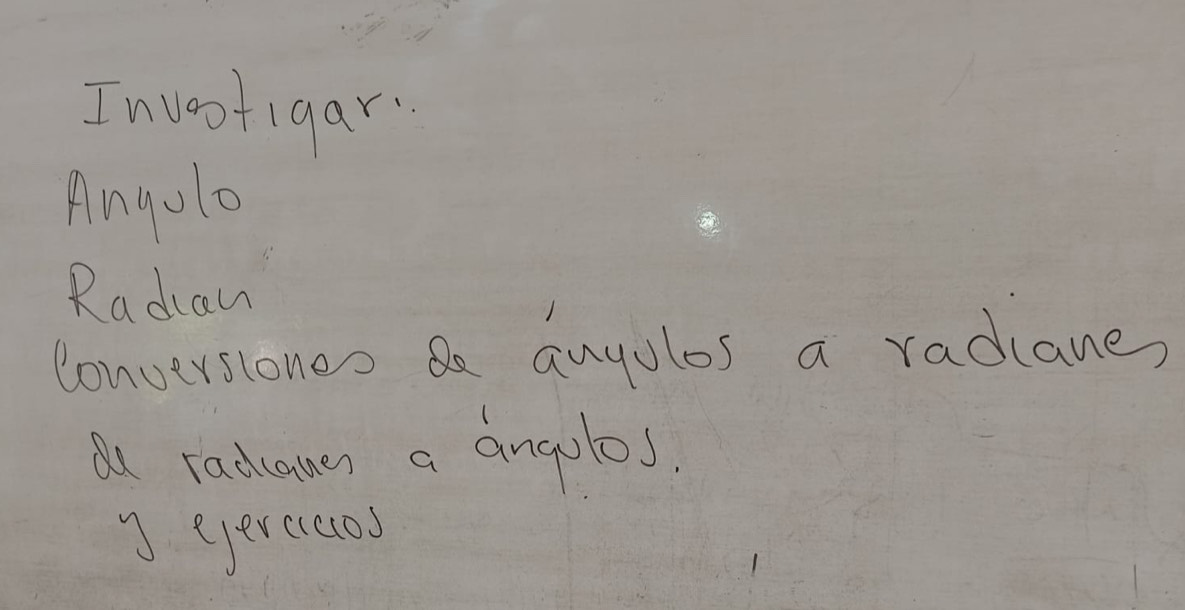 Investigar:
Angulo
Radian
Conversiones de ángulos a radianes
de radianes a ángulos.
y ejercicios